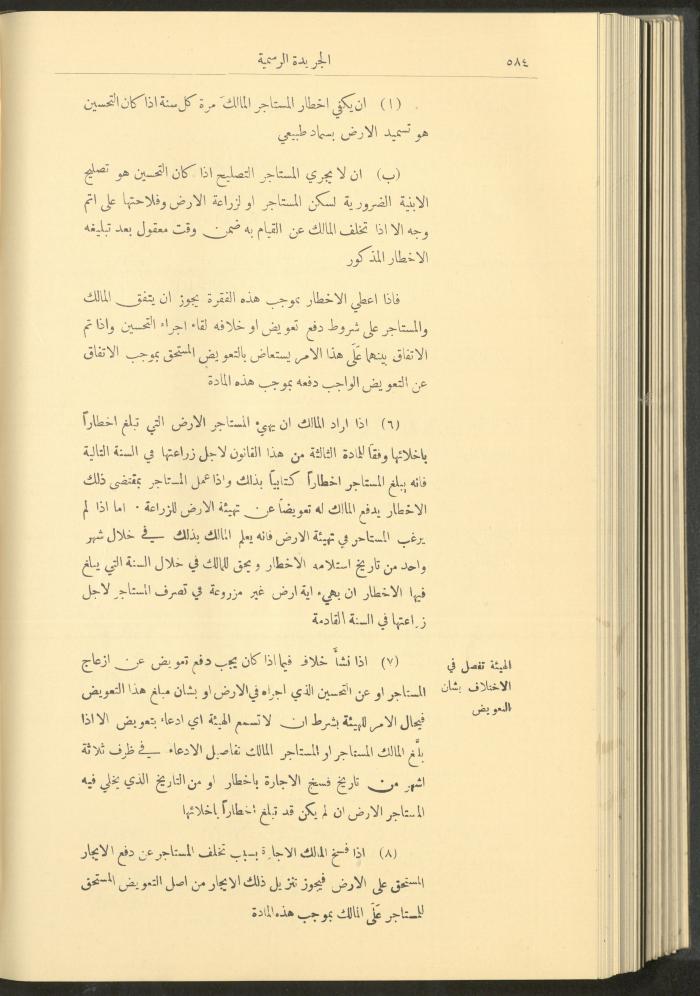 ٥٨٤
الجريدة الرسمية
(١) ان يكفي اخطار المستاجر المالك مرة كل سنة اذا كان التحسين
هو تسميد الارض بسماد طبيعي
(ب) ان لا يجري المستاجر التصليح اذا كان التحسين هو تصليح
الابنية الضرورية لسكن المستاجر او لزراعة الارض وفلاحتها على اتم
وجه الا اذا تخلف المالك عن القيام به ضمن وقت معقول بعد تبليغه
الاخطار المذكور
فاذا اعطي الاخطار بموجب هذه الفقرة يجوز ان يتفق المالك
والمستاجر على شروط دفع تعويض او خلافه لقاء اجراء التحسين واذا تم
الاتفاق بينهما عَلَى هذا الامر يستعاض بالتعويض المستحق بموجب الاتفاق
عن التعويض الواجب دفعه بموجب هذه المادة
(٦) اذا اراد المالك ان يهيء المستاجر الارض التي تبلغ اخطاراً
باخلائها وفقا للمادة الثالثة من هذا القانون لاجل زراعتها في السنة التالية
فانه يبلغ المستاجر اخطاراً كتابياً بذلك واذا عمل المستاجر بمقتضى ذلك
الاخطار يدفع المالك له تعويضاً عن تهيئة الارض للزراعة . اما اذا لم
يرغب المستاجر في تهيئة الارض فانه يعلم المالك بذلك في خلال شهر
واحد من تاريخ استلامه الاخطار ويحق للمالك في خلال السنة التي يبلغ
فيها الاخطار ان يهيء اية ارض غير مزروعة في تصرف المستاجر لاجل
زراعتها في السنة القادمة
الهيئة تفصل في
الاختلاف بشان
التعويض
(٧) اذا نشأ خلاف فيما اذا كان يجب دفع تعويض عن ازعاج
المستاجر او عن التحسين الذي اجراه في الارض او بشان مبلغ هذا التعويض
فيحال الامر للهيئة بشرط ان لا تسمع الهيئة اي ادعاء بتعويض الا اذا
بلَّغ المالك المستاجر او المستاجر المالك تفاصيل الادعاء في ظرف ثلاثة
اشهر من تاريخ فسخ الاجارة باخطار او من التاريخ الذي يخلي فيه
المستاجر الارض ان لم يكن قد تبلغ اخطاراً باخلائها
(٨) اذا فسخ المالك الاجارة بسبب تخلف المستاجر عن دفع الايجار
المستحق على الارض فيجوز تنزيل ذلك الايجار من اصل التعويض المستحق
للمستاجر عَلَى المالك بموجب هذه المادة